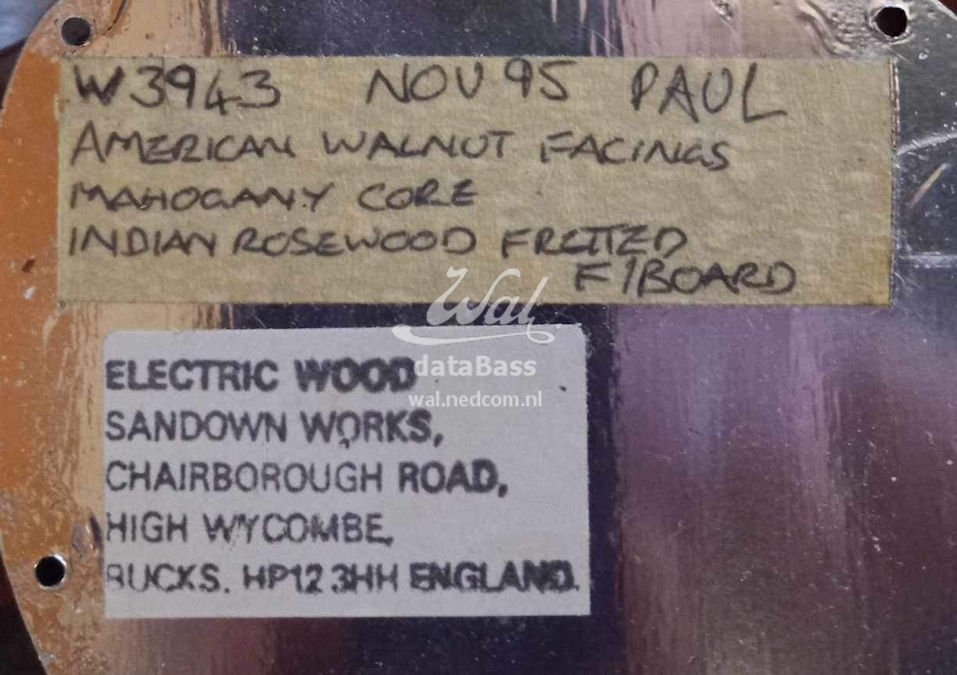 W3943 NOV 95 PAUL
AMERICAN WALNUT FACINGS
MAHOGANY CORE
INDIAN ROSEWOOD FRETTED
F/BOARD
Wal
dataBass
wal.nedcom.nl
ELECTRIC WOOD
SANDOWN WORKS,
CHAIRBOROUGH ROAD,
HIGH WYCOMBE,
BUCKS. HP12 3HH ENGLAND.